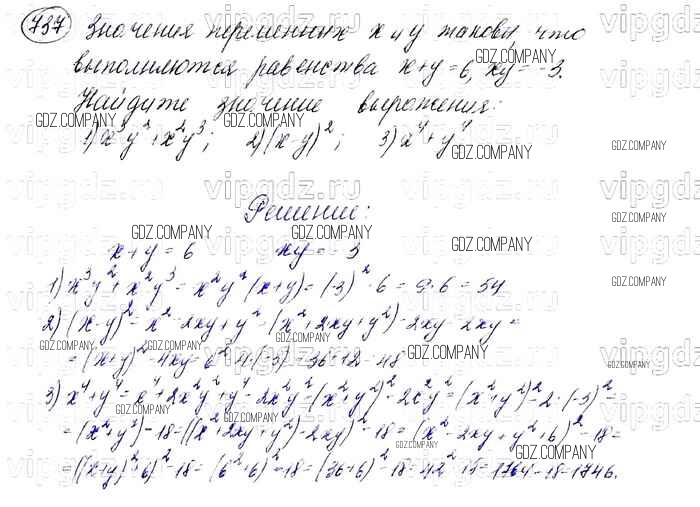 737 Значения переменных x и y таковы, что
выполняются равенства x+y=6, xy=-3.
Найдите значение выражения:
1) x³y²+x²y³; 2) (x-y)²; 3) x⁴+y⁴
Решение:
x+y=6 xy=-3
1) x³y²+x²y³=x²y²(x+y)=(-3)²·6=9·6=54
2) (x-y)²=x²-2xy+y²=(x²+2xy+y²)-2xy-2xy=
=(x+y)²-4xy=6²-4·(-3)=36+12=48
3) x⁴+y⁴=x⁴+2x²y²+y⁴-2x²y²=(x²+y²)²-2x²y²=(x²+y²)²-2·(-3)²=
=(x²+y²)²-18=((x²+2xy+y²)-2xy)²-18=(x²+2xy+y²+6)²-18=
=((x+y)²+6)²-18=(6²+6)²-18=(36+6)²-18=42²-18=1764-18=1746.